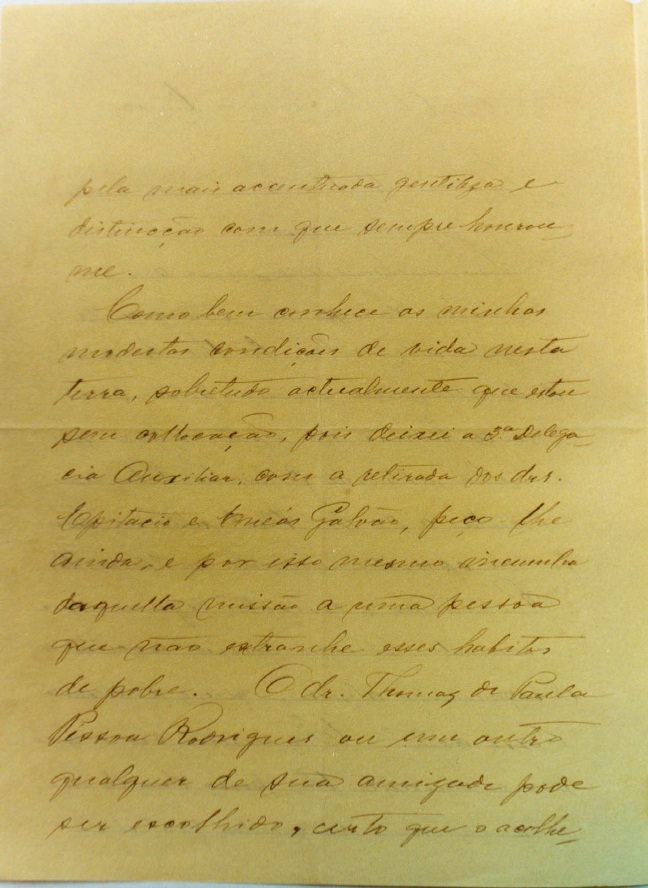 pela mais acentuada gentileza e
distincção com que sempre honrou-
me.
Como bem conhece as minhas
modestas condições de vida nesta
terra, sobretudo actualmente que estou
sem collocação, pois deixei a 3ª Delega-
cia Auxiliar, com a retirada dos drs.
Epitacio e Enéas Galvão, peço-lhe
ainda, e por isso mesmo, incumba
daquella missão a uma pessoa
que não extranhe esses habitos
de pobre. O dr. Thomaz de Paula
Pessoa Rodrigues ou um outro
qualquer de sua amizade pode
ser escolhido, certo que o acolhe-